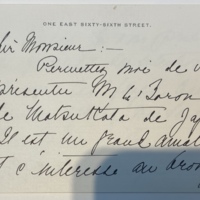 ONE EAST SIXTY-SIXTH STREET.
Monsieur :—
Permettez moi de v
présenter M le Baron
de Matsukata de Ja
Il est un grand ama
t s'intéresse au